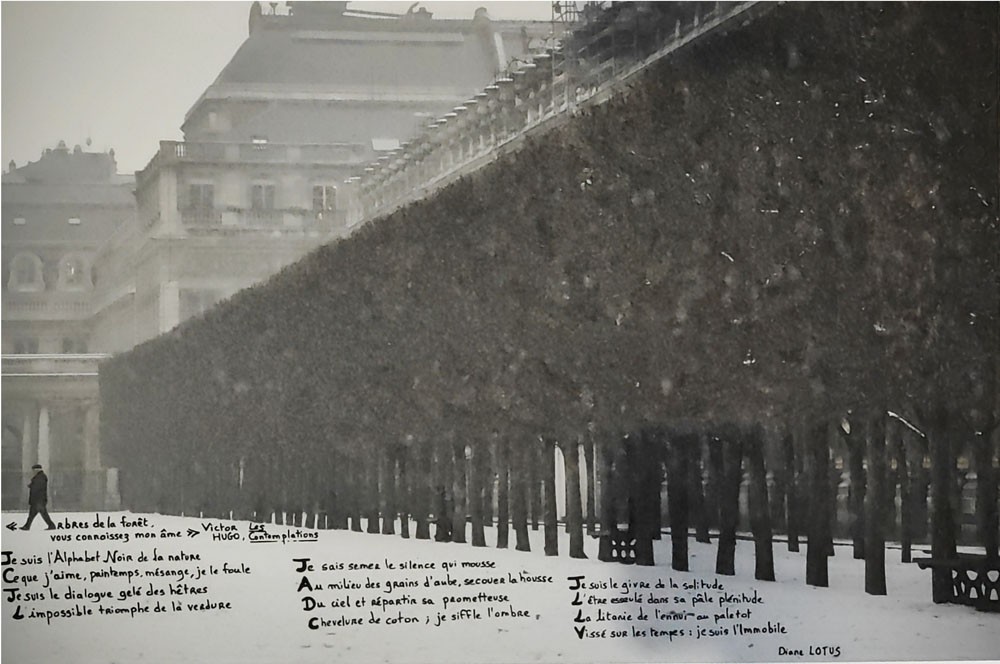 « rbres de la forêt,
vous connaissez mon âme »
Victor HUGO, Les Contemplations
Je suis l'Alphabet Noir de la nature
Ce que j'aime, printemps, mésange, je le foule
Je suis le dialogue gelé des hêtres
L impossible triomphe de la verdure
Je sais semer le silence qui mousse
Au milieu des grains d'aube, secouer la housse
Du ciel et répartir sa prometteuse
Chevelure de coton ; je siffle l'ombre.
Je suis le givre de la solitude
L'être esseulé dans sa pâle plénitude
La litanie de l'ennui au paletot
Vissé sur les tempes : je suis l'Immobile
Diane LOTUS